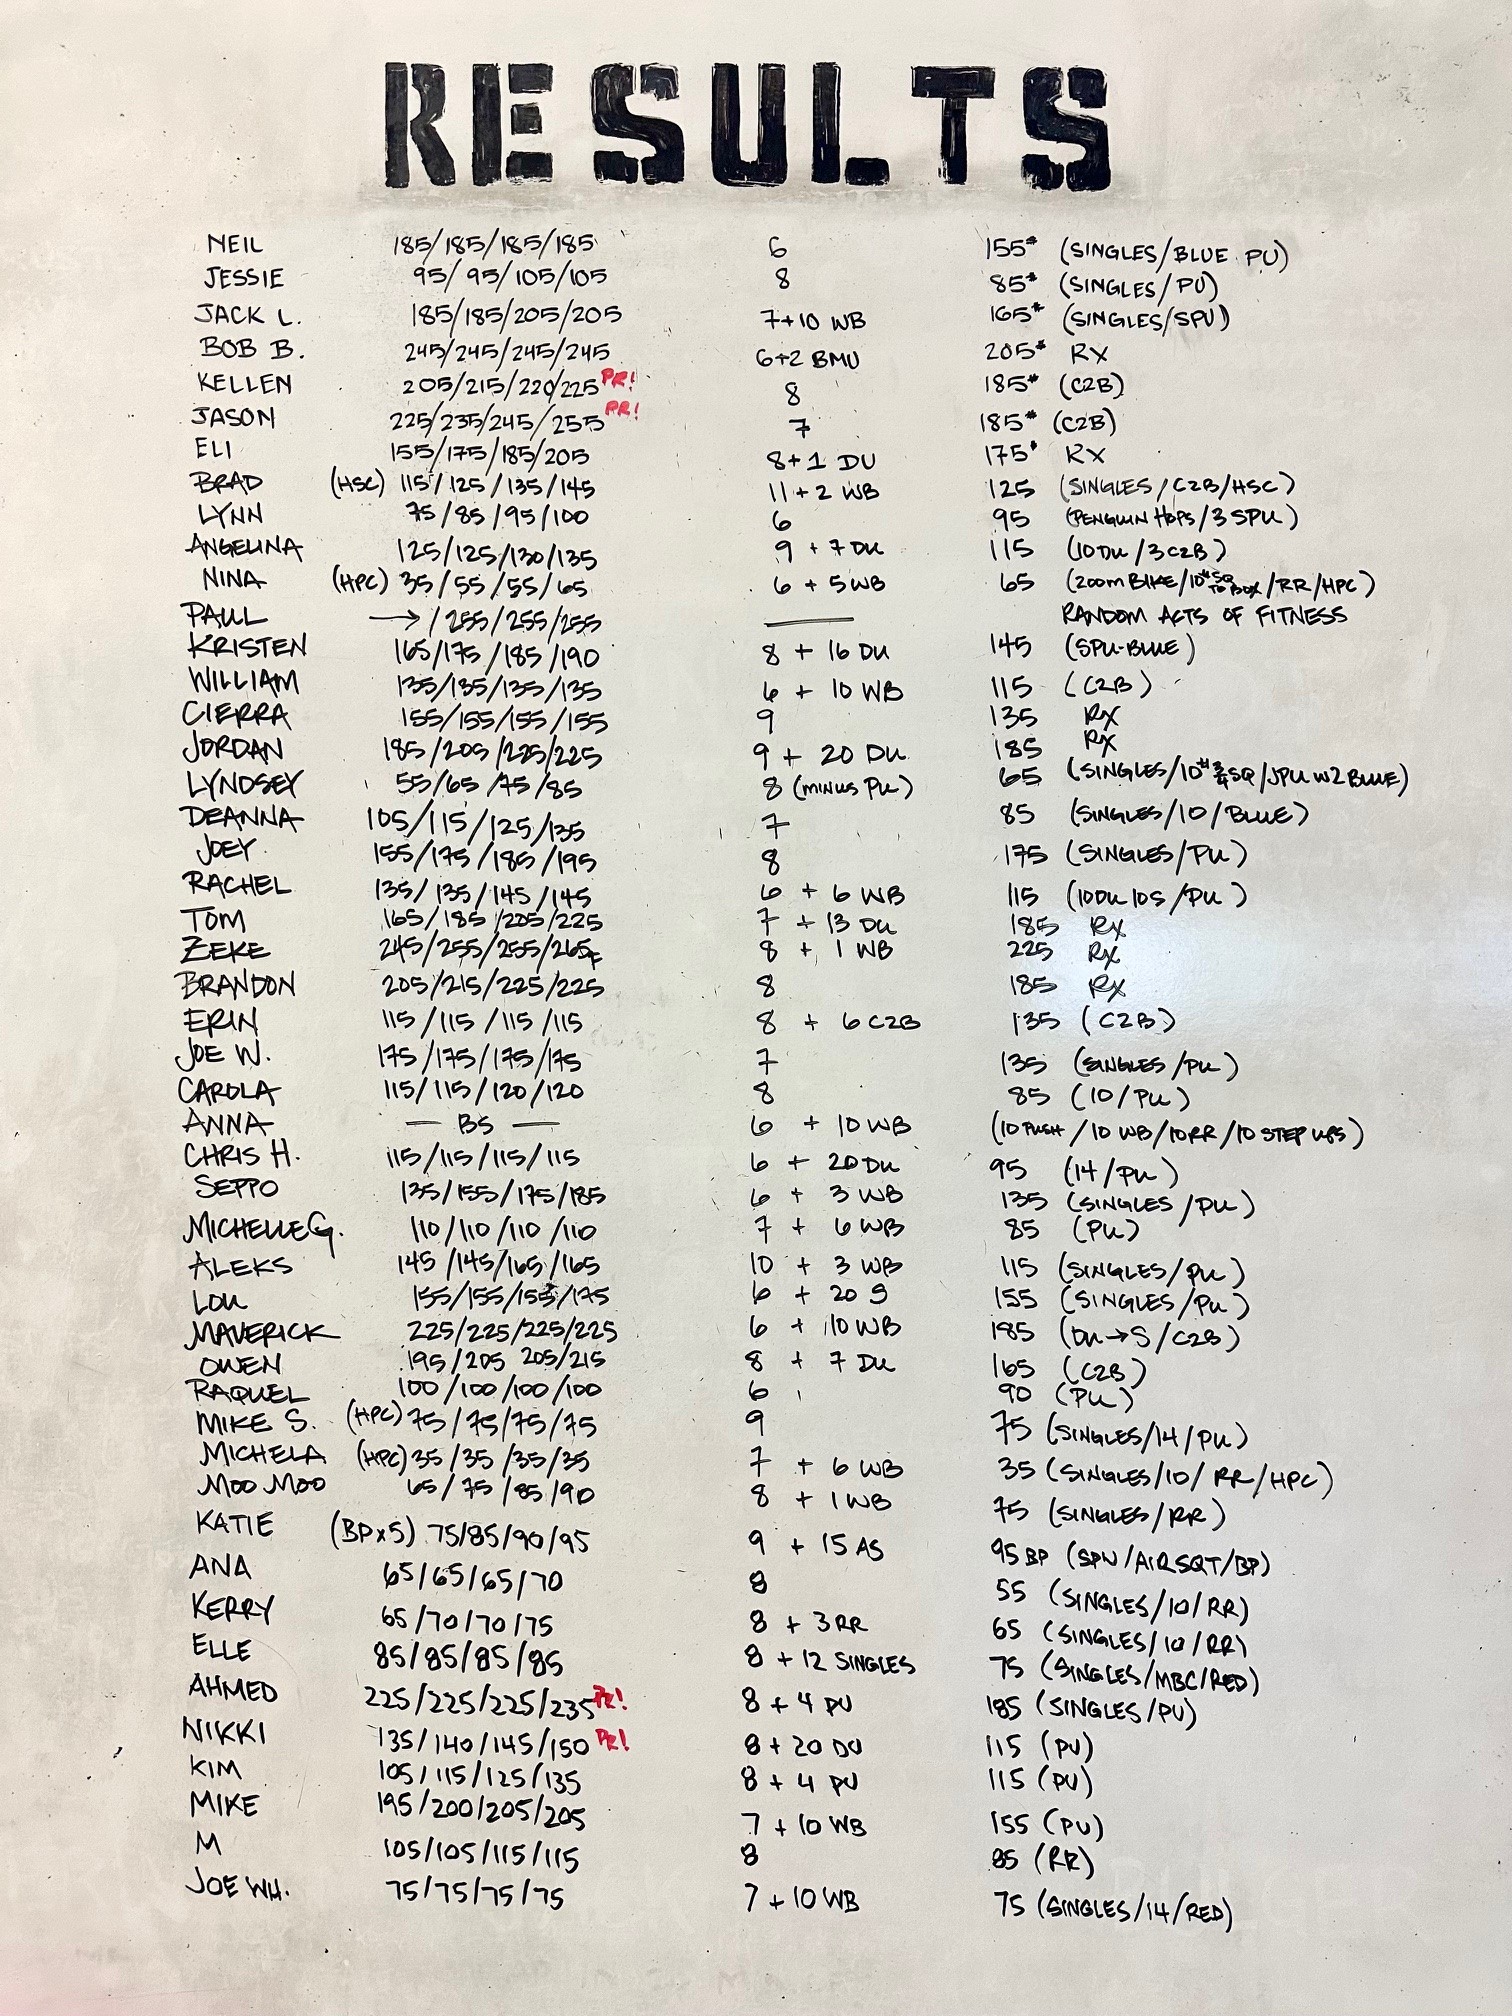 RESULTS
NEIL 185/185/185/185 6 155# (SINGLES/BLUE PU)
JESSIE 95/95/105/105 8 85# (SINGLES/PU)
JACK L. 185/185/205/205 7+10 WB 165# (SINGLES/SPU)
BOB B. 245/245/245/245 6+2 BMU 205# RX
KELLEN 205/215/220/225 PR! 8 185# (C2B)
JASON 225/235/245/255 PR! 7 185# (C2B)
ELI 155/175/185/205 8+1 DU 175# RX
BRAD (HSC) 115/125/135/145 11+2 WB 125 (SINGLES/C2B/HSC)
LYNN 75/85/95/100 6 95 (PENGUIN HOPS/3 SPU)
ANGELINA 125/125/130/135 9 + 7 DU 115 (10DU/3C2B)
NINA (HPC) 35/55/55/65 6 + 5WB 65 (200m BIKE/10# SQ TO BOX/RR/HPC)
PAUL → /255/255/255 — RANDOM ACTS OF FITNESS
KRISTEN 165/175/185/190 8 + 16 DU 145 (SPU-BLUE)
WILLIAM 135/135/135/135 6 + 10 WB 115 (C2B)
CIERRA 155/155/155/155 9 135 Rx
JORDAN 185/205/225/225 9 + 20 DU 185 Rx
LYNDSEY 55/65/75/85 8 (MINUS PU) 65 (SINGLES/10# SQ/JPU W2 BLUE)
DEANNA 105/115/125/135 7 85 (SINGLES/10/BLUE)
JOEY 155/175/185/195 8 175 (SINGLES/PU)
RACHEL 135/135/145/145 6 + 6 WB 115 (10DU 10S/PU)
TOM 165/185/205/225 7 + 13 DU 185 Rx
ZEKE 245/255/255/265F 8 + 1 WB 225 Rx
BRANDON 205/215/225/225 8 185 Rx
ERIN 115/115/115/115 8 + 6 C2B 135 (C2B)
JOE W. 175/175/175/175 7 135 (SINGLES/PU)
CAROLA 115/115/120/120 8 85 (10/PU)
ANNA — BS — 6 + 10 WB (10 PUSH/10 WB/10RR/10 STEP UPS)
CHRIS H. 115/115/115/115 6 + 20 DU 95 (14/PU)
SEPPO 135/155/175/185 6 + 3 WB 135 (SINGLES/PU)
MICHELLE G. 110/110/110/110 7 + 6 WB 85 (PU)
ALEKS 145/145/165/165 10 + 3 WB 115 (SINGLES/PU)
LOU 155/155/155/175 6 + 20 S 155 (SINGLES/PU)
MAVERICK 225/225/225/225 6 + 10 WB 185 (DU→S/C2B)
OWEN 195/205 205/215 8 + 7 DU 165 (C2B)
RAQUEL 100/100/100/100 6 90 (PU)
MIKE S. (HPC) 75/75/75/75 9 75 (SINGLES/14/PU)
MICHELA (HPC) 35/35/35/35 7 + 6 WB 35 (SINGLES/10/RR/HPC)
MOO MOO 65/75/85/90 8 + 1 WB 75 (SINGLES/RR)
KATIE (BPx5) 75/85/90/95 9 + 15 AS 95 BP (SPN/AIRSQT/BP)
ANA 65/65/65/70 8 55 (SINGLES/10/RR)
KERRY 65/70/70/75 8 + 3RR 65 (SINGLES/10/RR)
ELLE 85/85/85/85 8 + 12 SINGLES 75 (SINGLES/MBC/RED)
AHMED 225/225/225/235 PR! 8 + 4 PU 185 (SINGLES/PU)
NIKKI 135/140/145/150 PR! 8 + 20 DU 115 (PU)
KIM 105/115/125/135 8 + 4 PU 115 (PU)
MIKE 195/200/205/205 7 + 10 WB 155 (PU)
M 105/105/115/115 8 85 (RR)
JOE WH. 75/75/75/75 7 + 10 WB 75 (SINGLES/14/RED)